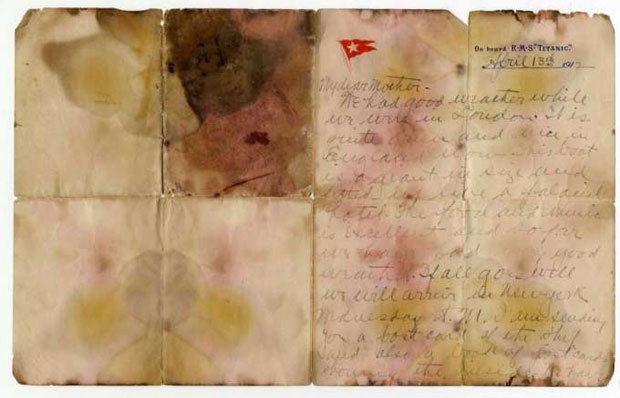 On board R·M·S "TITANIC."
April 13th 1912
My dear Mother-
We had good weather while
we were in London. It is
quite green and nice in
England now. This boat
is a giant in size and
fitted up like a palacial
hotel. The food and music
is excellent and so far
we have had good
weather. If all goes well
we will arrive in New York
Wednesday A.M. I am sending
you a postcard of the ship
and also a book of postcards
showing the inside